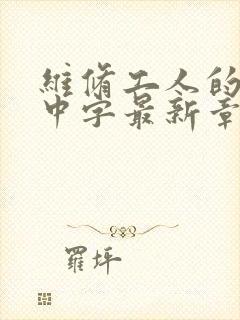 維脩工人的
中字最新章
羅坪